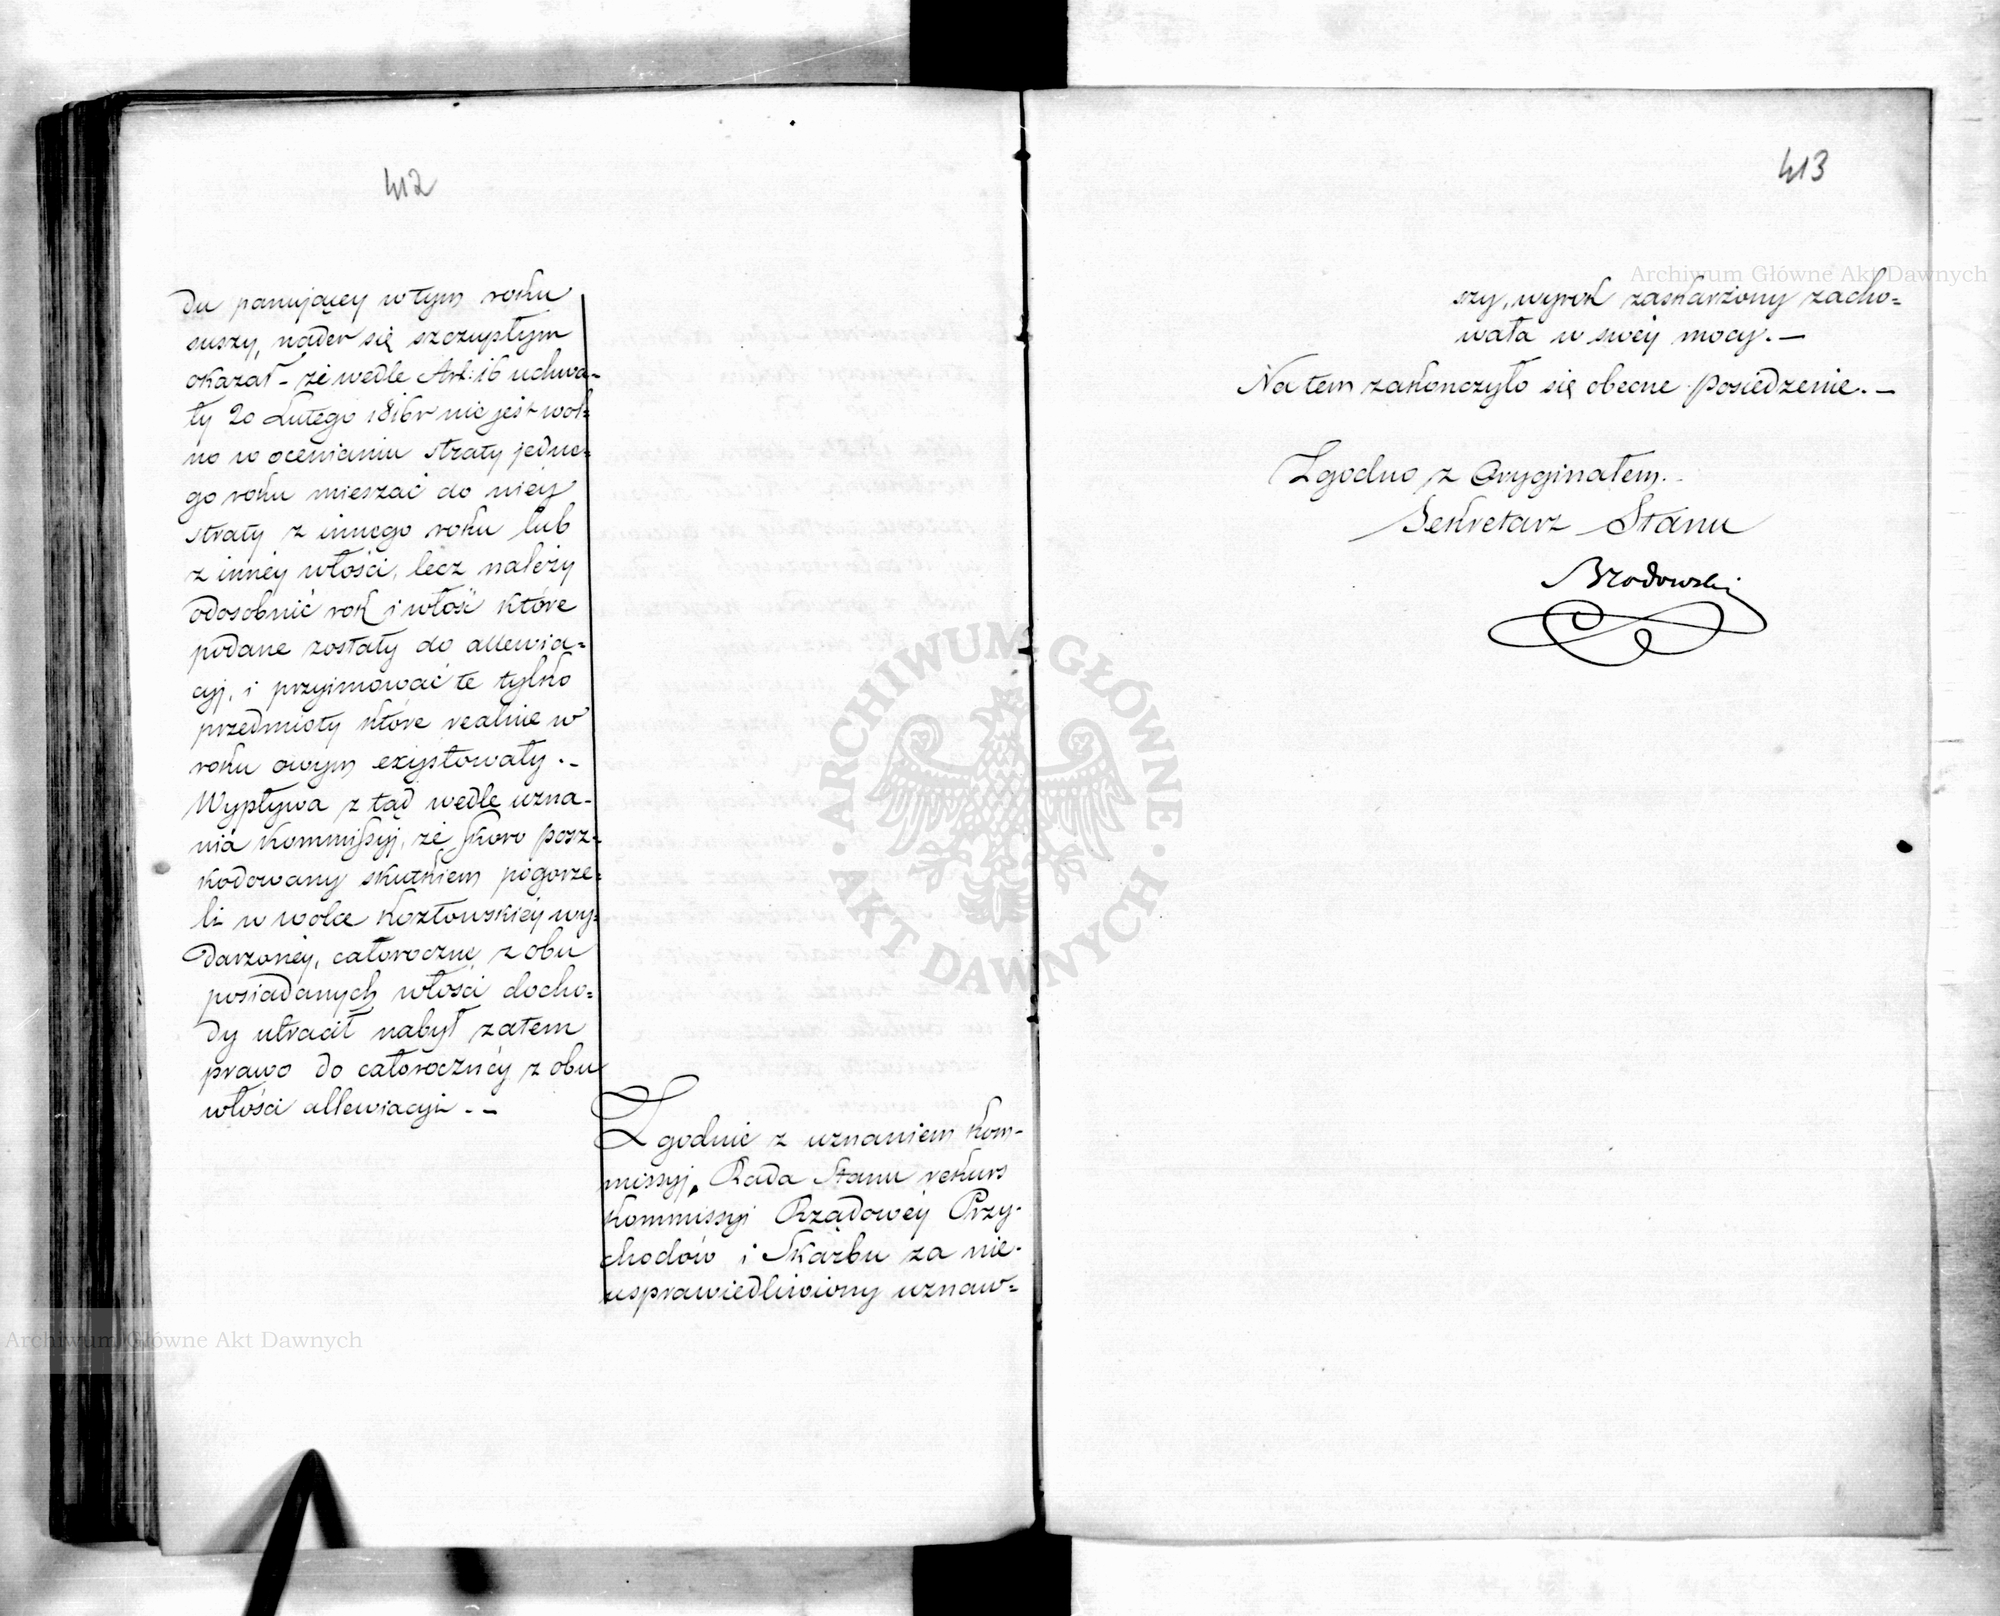 412
du panującey w tym roku
suszy, nader się szczupłym
okazał – że wedle Art: 16 uchwa-
ły 20 Lutego 1816r nie jest wol=
no w ocenianiu straty jedne=
go roku mieszać do niey
straty z innego roku lub
z inney włości, lecz należy
odosobnić rok i włość które
podane zostały do allewia=
cyj, i przyimować te tylko
przedmioty które realnie w
roku owym exystowały. –
Wypływa z tąd wedle uzna-
nia Kommissyj, że skoro posz-
kodowany skutkiem pogorze=
li w wolce Kozłowskiéy wy=
darzonéy, całoroczne z obu
posiadanych włości docho=
dy utracił nabył zatem
prawo do całorocznéy z obu
włości allewiacyi. –
Zgodnie z uznaniem Kom-
missyj, Rada Stanu rekurs
Kommissyi Rządowéy Przy-
chodów i Skarbu za nie-
usprawiedliwiony uznaw=
413
szy, wyrok zaskarżony zacho=
wała w swéy mocy. –
Na tem zakończyło się obecne posiedzenie. –
Zgodno z Oryginałem.
Sekretarz Stanu
Brodowski
Archiwum Główne Akt Dawnych
ARCHIWUM GŁÓWNE · AKT DAWNYCH ·
Archiwum Główne Akt Dawnych